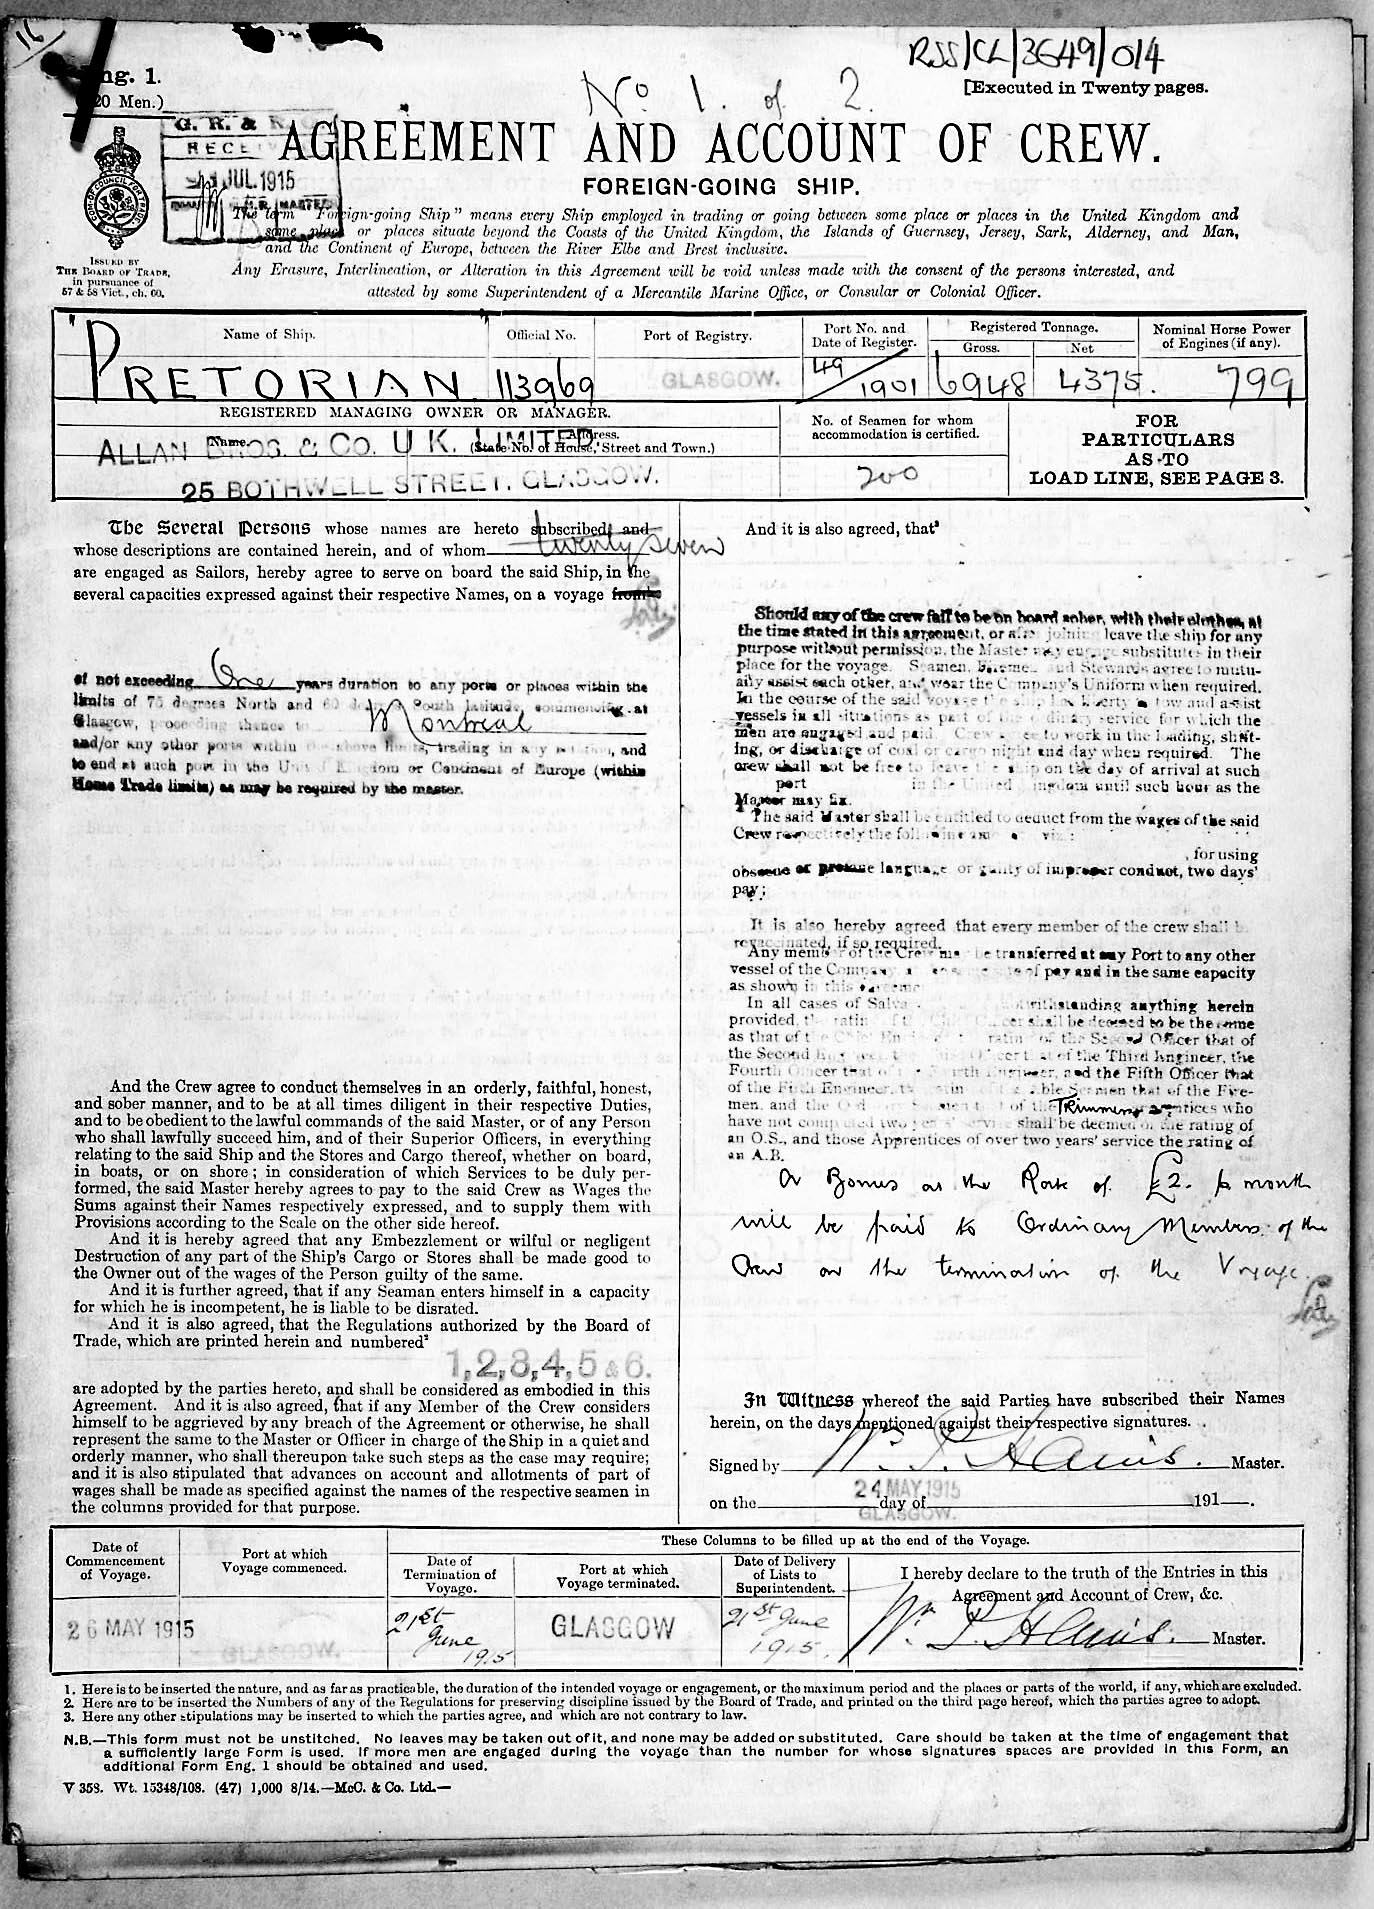 16
RSS/CL/3649/014
ng. 1.
20 Men.)
No 1. of 2.
[Executed in Twenty pages.
G. R. &
RECEI
JUL.1915
AGREEMENT AND ACCOUNT OF CREW.
FOREIGN-GOING SHIP.
The term "Foreign-going Ship" means every Ship employed in trading or going between some place or places in the United Kingdom and
some place or places situate beyond the Coasts of the United Kingdom, the Islands of Guernsey, Jersey, Sark, Alderney, and Man,
and the Continent of Europe, between the River Elbe and Brest inclusive.
Any Erasure, Interlineation, or Alteration in this Agreement will be void unless made with the consent of the persons interested, and
attested by some Superintendent of a Mercantile Marine Office, or Consular or Colonial Officer.
COM. OF COUNCIL FOR TRADE
ISSUED BY
THE BOARD OF TRADE,
in pursuance of
57 & 58 Vict., ch. 60.
Name of Ship.
Official No.
Port of Registry.
Port No. and
Date of Register.
Registered Tonnage.
Gross.
Net
Nominal Horse Power
of Engines (if any).
"PRETORIAN"
113969
GLASGOW.
49/1901
6948
4375.
799
REGISTERED MANAGING OWNER OR MANAGER.
Name.
Address.
(State No. of House, Street and Town.)
ALLAN BROS. & CO. U K. LIMITED.
25 BOTHWELL STREET, GLASGOW.
No. of Seamen for whom
accommodation is certified.
200
FOR
PARTICULARS
AS TO
LOAD LINE, SEE PAGE 3.
The Several Persons whose names are hereto subscribed, and
whose descriptions are contained herein, and of whom twenty seven
are engaged as Sailors, hereby agree to serve on board the said Ship, in the
several capacities expressed against their respective Names, on a voyage from
of not exceeding One years duration to any ports or places within the
limits of 75 degrees North and 60 degrees South latitude, commencing at
Glasgow, proceeding thence to Montreal
and/or any other ports within the above limits, trading in any rotation, and
to end at such port in the United Kingdom or Continent of Europe (within
Home Trade limits) as may be required by the master.
And the Crew agree to conduct themselves in an orderly, faithful, honest,
and sober manner, and to be at all times diligent in their respective Duties,
and to be obedient to the lawful commands of the said Master, or of any Person
who shall lawfully succeed him, and of their Superior Officers, in everything
relating to the said Ship and the Stores and Cargo thereof, whether on board,
in boats, or on shore; in consideration of which Services to be duly per-
formed, the said Master hereby agrees to pay to the said Crew as Wages the
Sums against their Names respectively expressed, and to supply them with
Provisions according to the Scale on the other side hereof.
And it is hereby agreed that any Embezzlement or wilful or negligent
Destruction of any part of the Ship's Cargo or Stores shall be made good to
the Owner out of the wages of the Person guilty of the same.
And it is further agreed, that if any Seaman enters himself in a capacity
for which he is incompetent, he is liable to be disrated.
And it is also agreed, that the Regulations authorized by the Board of
Trade, which are printed herein and numbered²
1, 2, 3, 4, 5 & 6.
are adopted by the parties hereto, and shall be considered as embodied in this
Agreement. And it is also agreed, that if any Member of the Crew considers
himself to be aggrieved by any breach of the Agreement or otherwise, he shall
represent the same to the Master or Officer in charge of the Ship in a quiet and
orderly manner, who shall thereupon take such steps as the case may require;
and it is also stipulated that advances on account and allotments of part of
wages shall be made as specified against the names of the respective seamen in
the columns provided for that purpose.
And it is also agreed, that³
Should any of the crew fail to be on board sober, with their clothes, at
the time stated in this agreement, or after joining leave the ship for any
purpose without permission, the Master may engage substitutes in their
place for the voyage. Seamen, Firemen and Stewards agree to mutu-
ally assist each other, and wear the Company's Uniform when required.
In the course of the said voyage the ship has liberty to tow and assist
vessels in all situations as part of the ordinary service for which the
men are engaged and paid. Crew agree to work in the loading, shift-
ing, or discharge of coal or cargo night and day when required. The
crew shall not be free to leave the ship on the day of arrival at such
port in the United Kingdom until such hour as the
Master may fix.
The said Master shall be entitled to deduct from the wages of the said
Crew respectively the following viz.:
, for using
obscene or profane language, or guilty of improper conduct, two days'
pay;
It is also hereby agreed that every member of the crew shall b
revaccinated, if so required.
Any member of the Crew may be transferred at any Port to any other
vessel of the Company at rate of pay and in the same capacity
as shown in this agreement
In all cases of Salvage notwithstanding anything herein
provided, the rating of the Chief Officer shall be deemed to be the same
as that of the Chief Engineer, the rating of the Second Officer that of
the Second Engineer, the Third Officer that of the Third Engineer, the
Fourth Officer that of the Fourth Engineer, and the Fifth Officer that
of the Fifth Engineer, the rating of the Able Seamen that of the Fire-
men, and the Ordinary Seamen that of the Trimmers Apprentices who
have not completed two years' service shall be deemed of the rating of
an O.S., and those Apprentices of over two years' service the rating of
an A.B.
A Bonus at the Rate of £2. p month
will be paid to Ordinary Members of the
Crew on the termination of the Voyage.
In Witness whereof the said Parties have subscribed their Names
herein, on the days mentioned against their respective signatures.
Signed by Master.
on the 24 MAY 1915 day of 191 .
GLASGOW.
Date of
Commencement
of Voyage.
Port at which
Voyage commenced.
These Columns to be filled up at the end of the Voyage.
Date of
Termination of
Voyage.
Port at which
Voyage terminated.
Date of Delivery
of Lists to
Superintendent.
I hereby declare to the truth of the Entries in this
Agreement and Account of Crew, &c.
26 MAY 1915
GLASGOW.
21st June 1915
GLASGOW
21st June 1915.
Master.
1. Here is to be inserted the nature, and as far as practicable, the duration of the intended voyage or engagement, or the maximum period and the places or parts of the world, if any, which are excluded.
2. Here are to be inserted the Numbers of any of the Regulations for preserving discipline issued by the Board of Trade, and printed on the third page hereof, which the parties agree to adopt.
3. Here any other stipulations may be inserted to which the parties agree, and which are not contrary to law.
N.B.—This form must not be unstitched. No leaves may be taken out of it, and none may be added or substituted. Care should be taken at the time of engagement that
a sufficiently large Form is used. If more men are engaged during the voyage than the number for whose signatures spaces are provided in this Form, an
additional Form Eng. 1 should be obtained and used.
V 358. Wt. 15348/108. (47) 1,000 8/14.—McC. & Co. Ltd.—